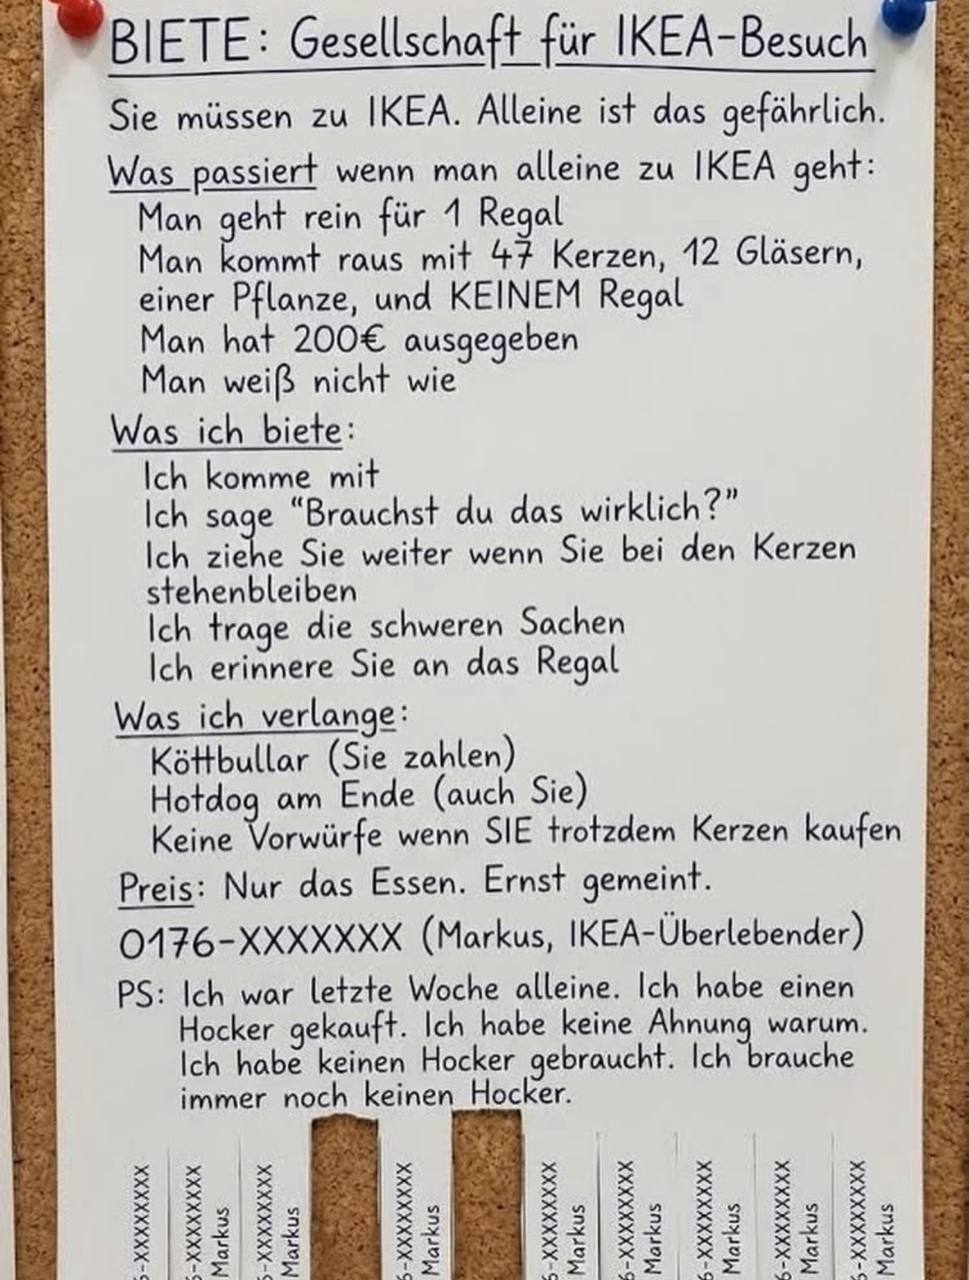 BIETE: Gesellschaft für IKEA-Besuch
Sie müssen zu IKEA. Alleine ist das gefährlich.
Was passiert wenn man alleine zu IKEA geht:
Man geht rein für 1 Regal
Man kommt raus mit 47 Kerzen, 12 Gläsern,
einer Pflanze, und KEINEM Regal
Man hat 200€ ausgegeben
Man weiß nicht wie
Was ich biete:
Ich komme mit
Ich sage “Brauchst du das wirklich?”
Ich ziehe Sie weiter wenn Sie bei den Kerzen
stehenbleiben
Ich trage die schweren Sachen
Ich erinnere Sie an das Regal
Was ich verlange:
Köttbullar (Sie zahlen)
Hotdog am Ende (auch Sie)
Keine Vorwürfe wenn SIE trotzdem Kerzen kaufen
Preis: Nur das Essen. Ernst gemeint.
0176-XXXXXXX (Markus, IKEA-Überlebender)
PS: Ich war letzte Woche alleine. Ich habe einen
Hocker gekauft. Ich habe keine Ahnung warum.
Ich habe keinen Hocker gebraucht. Ich brauche
immer noch keinen Hocker.
6-XXXXXXXX
6-XXXXXXXX
Markus
6-XXXXXXXX
Markus
6-XXXXXXXX
Markus
6-XXXXXXXX
Markus
6-XXXXXXXX
Markus
6-XXXXXXXX
Markus
6-XXXXXXXX
Markus
6-XXXXXXXX
Markus